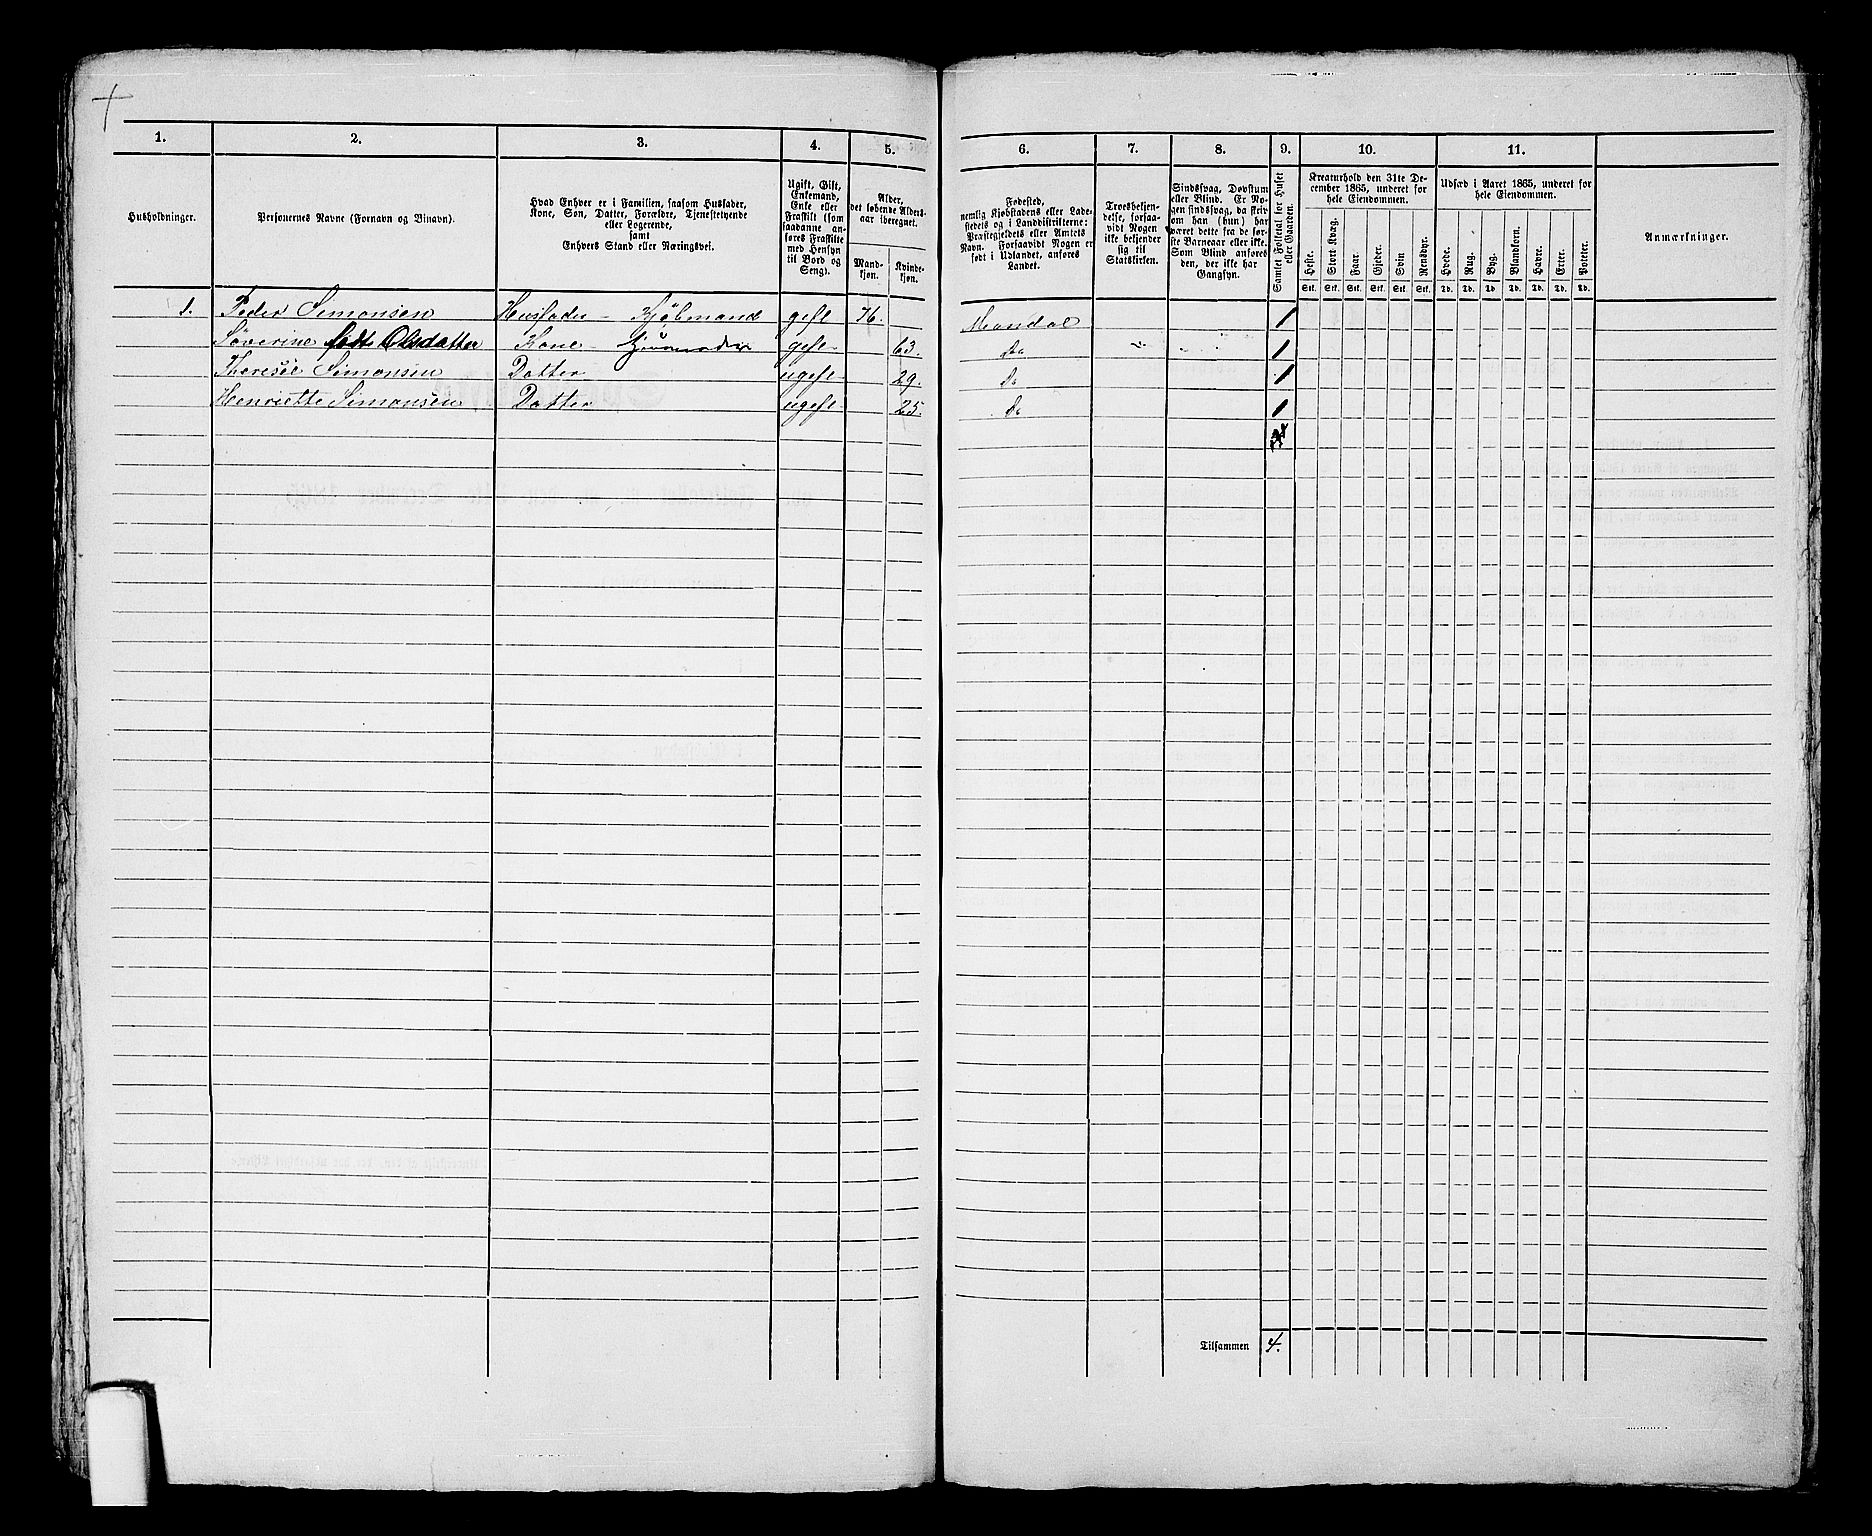 1. 2. 3. 4. 5. 6. 7. 8. 9. 10. 11.
Husholdninger.
Personernes Navne (Fornavn og Binavn).
Hvad Enhver er i Familien, saasom Husfader,
Kone, Søn, Datter, Forældre, Tjenestetyende
eller Logerende,
samt
Enhvers Stand eller Næringsvei.
Ugift, Gift,
Enkemand,
Enke eller
Fraskilt (som
saadanne an-
føres Fraskilte
med Hensyn
til Bord og
Seng).
Alder,
det løbende Alders-
aar iberegnet.
Mand-
kjøn.
Kvinde-
kjøn.
Fødested,
nemlig Kjøbstadens eller Lade-
stedets og i Landdistrikterne:
Præstegjeldets eller Amtets
Navn. Forsaavidt Nogen er
født i Udlandet, anføres
Landet.
Troesbekjen-
delse, forsaa-
vidt Nogen
ikke bekjender
sig til
Statskirken.
Sindssvag, Døvstum
eller Blind. Er No-
gen sindssvag, da skriv
om han (hun) har
været dette fra de før-
ste Barneaar eller ikke.
Som Blind anføres
den, der ikke har
Gangsyn.
Samlet Folketal for Huset
eller Gaarden.
Kreaturhold den 31te De-
cember 1865, underet for
hele Eiendommen.
Heste. Stort Kvæg. Faar. Gjeder. Svin Rensdyr.
Stk. Stk. Stk. Stk. Stk. Stk.
Udsæd i Aaret 1865, underet for
hele Eiendommen.
Hvede. Rug. Byg. Blandkorn. Havre. Erter. Poteter.
Td. Td. Td Td. Td. Td. Td.
Anmærkninger.
1. Peder Simonsen Husfader - Kjøbmand gift 76. Mandal 1
Severine født Olsdatter Kone gift 63. Do 1
Theresee Simonsen Datter ugift 29. Do 1
Henriette Simonsen Datter ugift 25. Do 1
Tilsammen 4.